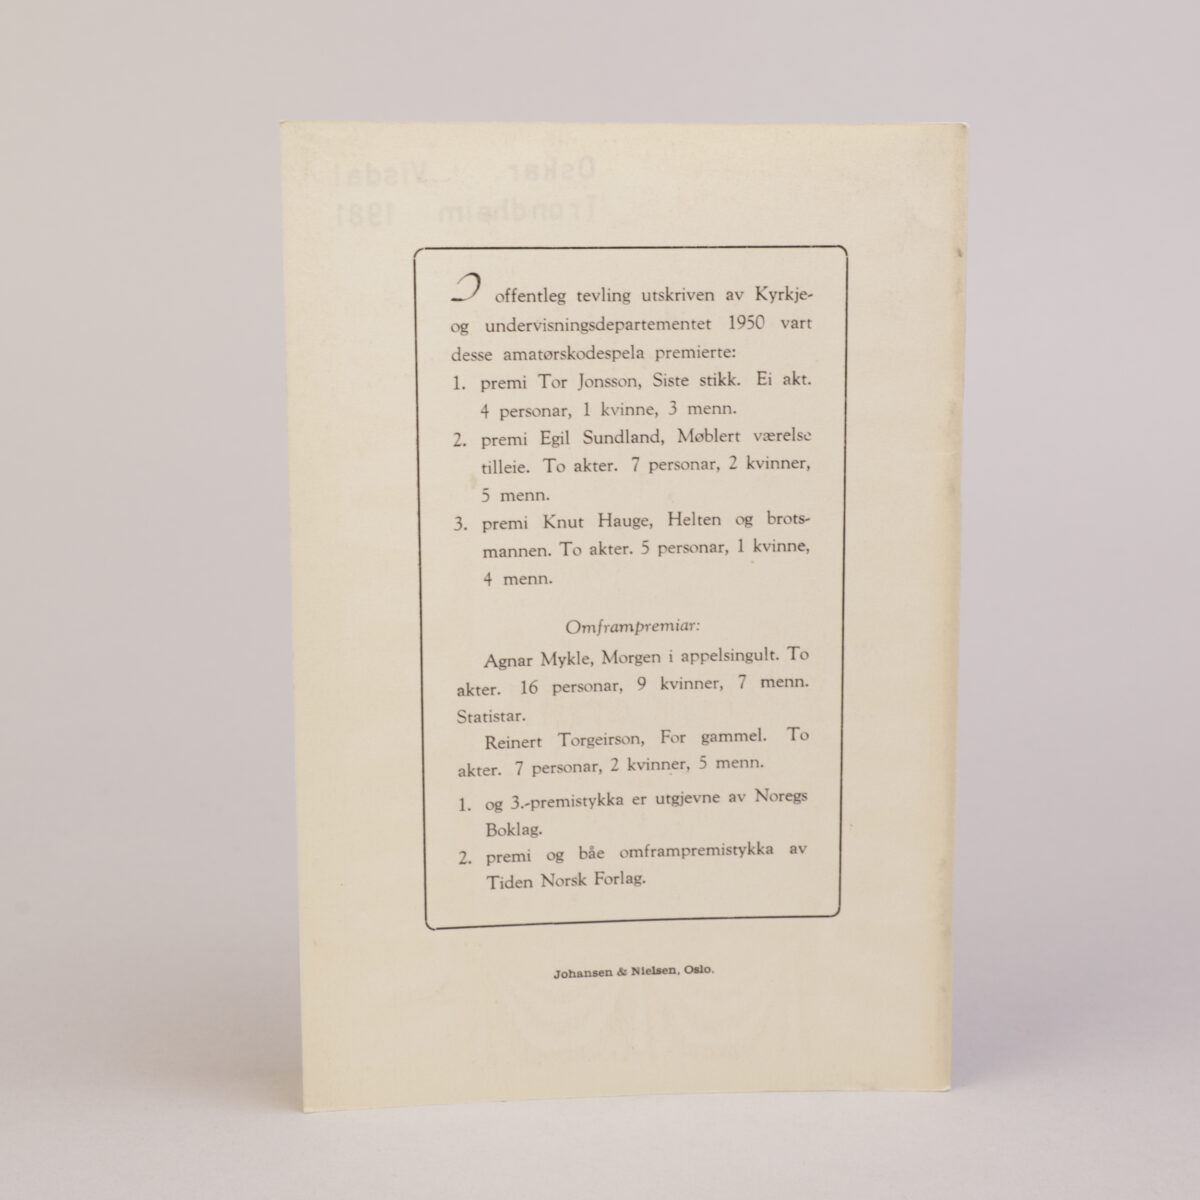 Oskar Visdal
Trondheim 1981
I offentleg tevling utskriven av Kyrkje-
og undervisningsdepartementet 1950 vart
desse amatørskodespela premierte:
1. premi Tor Jonsson, Siste stikk. Ei akt.
4 personar, 1 kvinne, 3 menn.
2. premi Egil Sundland, Møblert værelse
tilleie. To akter. 7 personar, 2 kvinner,
5 menn.
3. premi Knut Hauge, Helten og brots-
mannen. To akter. 5 personar, 1 kvinne,
4 menn.
Omframpremiar:
Agnar Mykle, Morgen i appelsingult. To
akter. 16 personar, 9 kvinner, 7 menn.
Statistar.
Reinert Torgeirson, For gammel. To
akter. 7 personar, 2 kvinner, 5 menn.
1. og 3.-premistykka er utgjevne av Noregs
Boklag.
2. premi og båe omframpremistykka av
Tiden Norsk Forlag.
Johansen & Nielsen, Oslo.